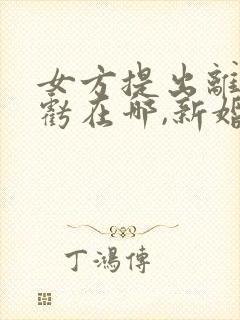 女方提出離
虧在哪,新婚
丁鴻傳